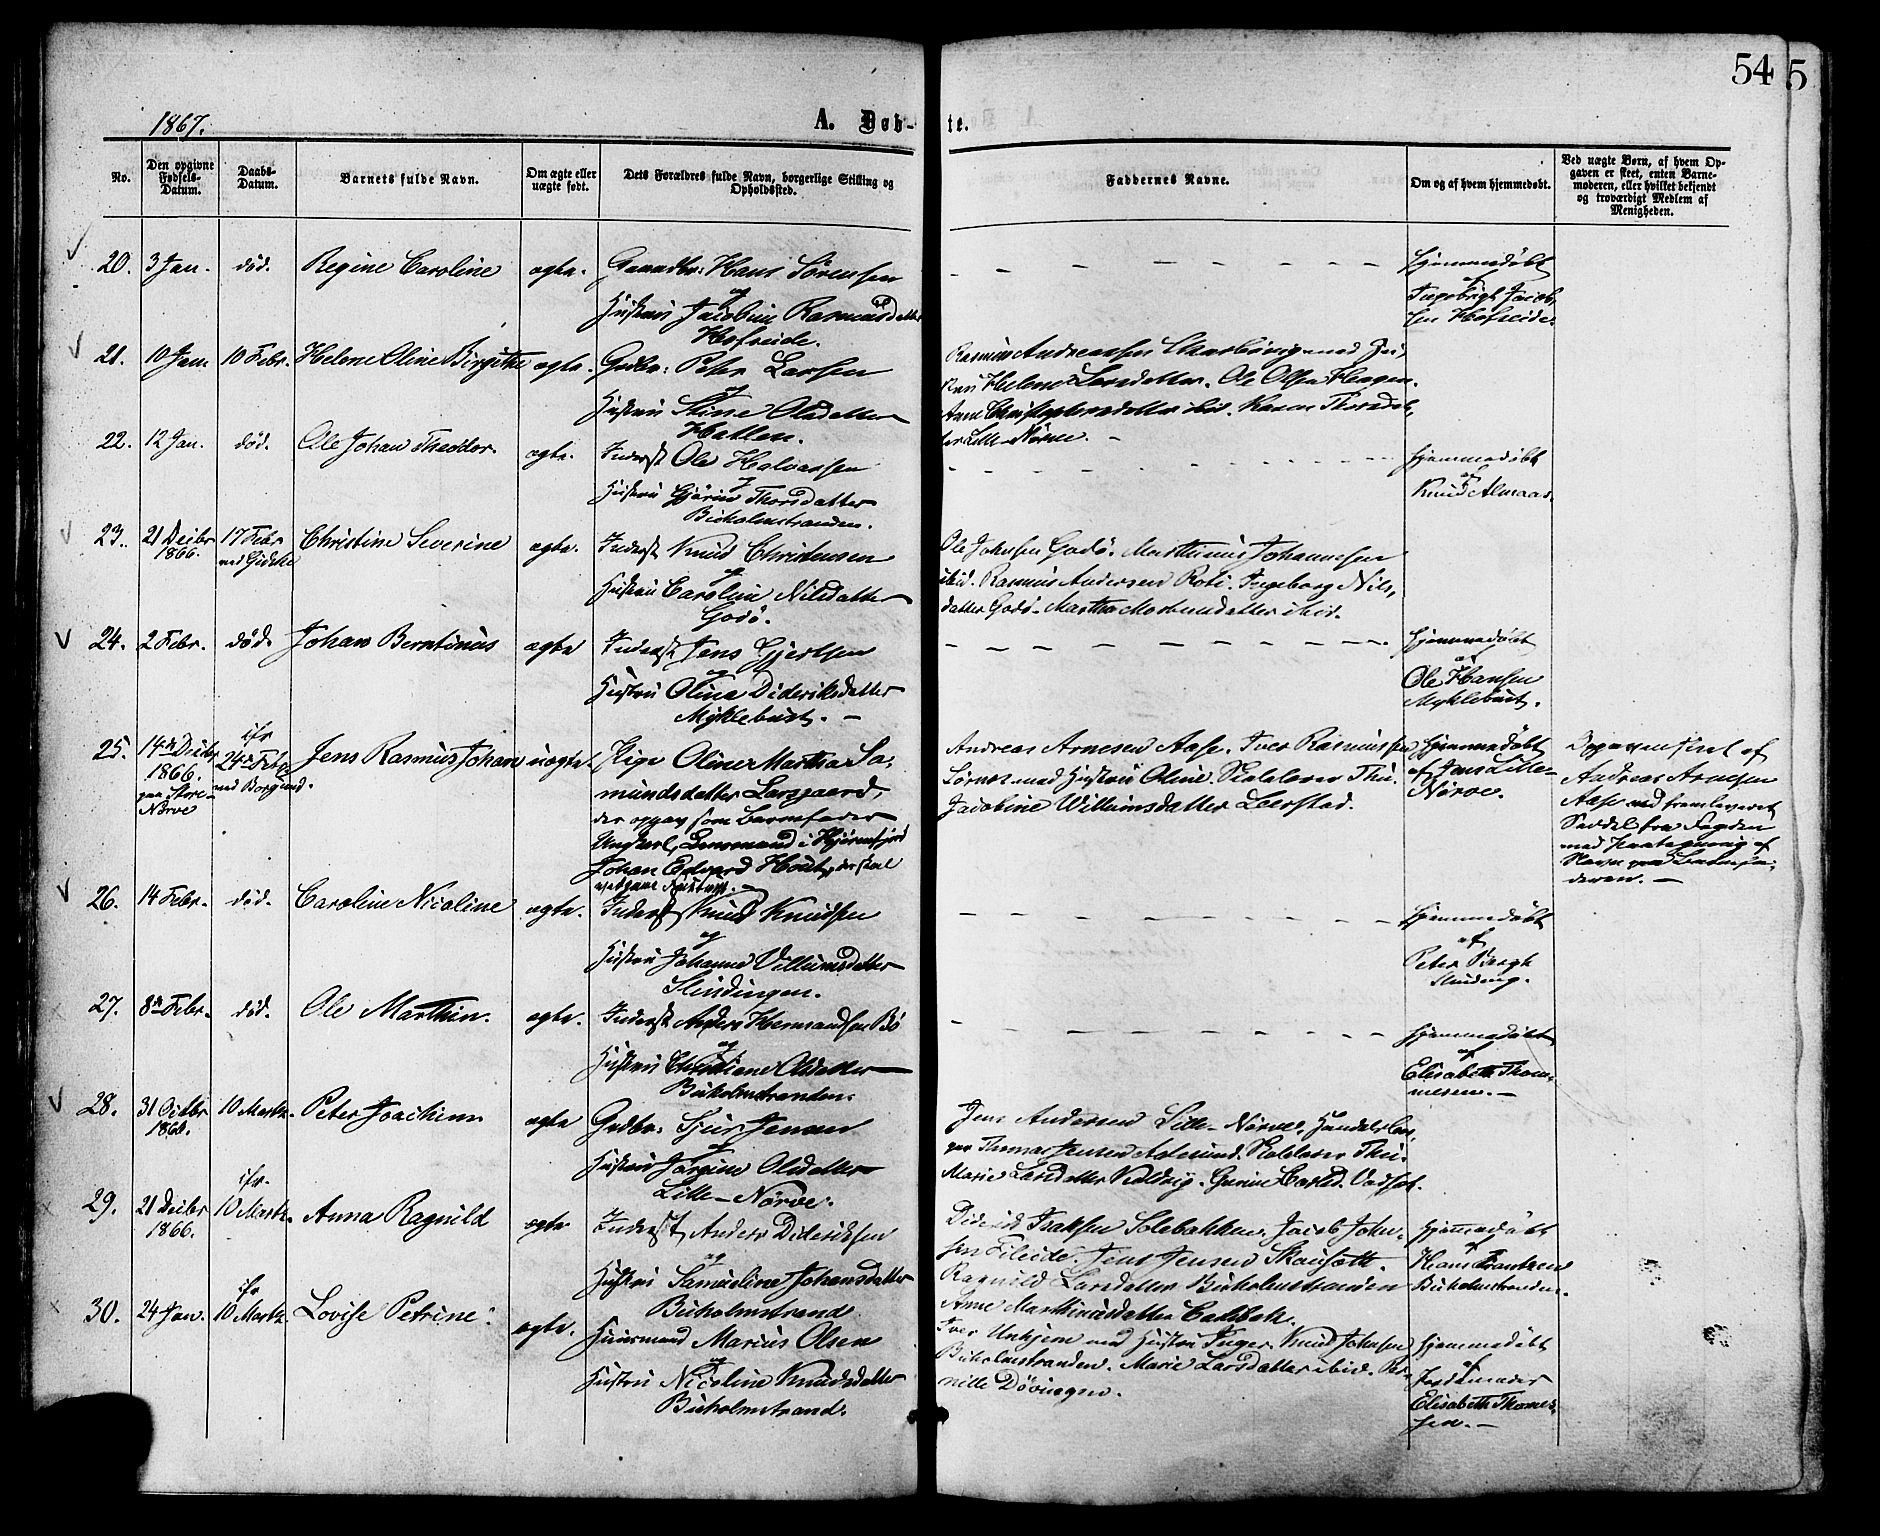 54 5
1867.
A. Døb- te.
No.
Den opgivne
Fødsels-
Datum.
Daabs-
Datum.
Barnets fulde Navn.
Om ægte eller
uægte født.
Dets Forældres fulde Navn, borgerlige Stilling og
Opholdssted.
Faddernes Navne.
Om og af hvem hjemmedøbt.
Ved uægte Børn, af hvem Op-
gaven er skeet, enten Barne-
moderen, eller hvilket bekjendt
og troværdigt Medlem af
Menigheden.
20. 3 Jan. død. Regine Caroline ægte. Gaardbr: Hans Sørensen
og
Hustru Jacobine Rasmusdatter
Hofseide.
Hjemmedøbt
af
Ingebrigt Jacob-
sen Hofseide.
21. 10 Jan. 10 Febr. Helene Oline Birgithe ægte. Grdbr: Peter Larsen
og
Hustru Stine Olsdatter
Hatlen.
Rasmus Andreassen Skarbøvig med Hu-
stru Helene Larsdatter. Ole Olsen Hagen.
Anne Christophersdatter ibid. Karen Thorsdat-
ter Lille-Nørve. -
22. 12 Jan. død. Ole Johan Theodor. ægte. Inderst Ole Halvorsen
og
Hustru Gjørine Thorsdatter
Buholmstranden.
Hjemmedøbt
af
Knud Almaas.
23. 21 Decbr 17 Febr Christine Severine ægte. Inderst Knud Christensen
1866. ved Gidske
og
Hustru Caroline Nilsdatter
Godø.
Ole Johnsen Godø. Marthinus Johannesen
ibid. Rasmus Andersen Roti. Ingeborg Nils-
datter Godø. Martha Mortensdatter ibid.
24. 2 Febr. død. Johan Berntinus ægte Inderst Jens Gjertsen
og
Hustru Olina Dideriksdatter
Myklebust. -
Hjemmedøbt
af
Ole Hansen
Myklebust.
25. 14de Decbr ifr 24de Febr Jens Rasmus Johan uægte. Pige Oline Martha Sa-
1866. ved Borgund.
paa Store-
Nørve
mundsdatter Larsgaard,
der opgav som Barnefader
Ungkarl, Lensmand i Hjørendfjord
Johan Edvard Hoult, der skal
Andreas Arnesen Aase. Iver Rasmussen
Sørnes med Hustru Oline. Skolelærer Thii.
Jacobine Willumsdatter Lerstad.
Hjemmedøbt
af Jens Lille-
Nørve.
Opgaven skeet af
Andreas Arnesen
Aase med fremleveret
Seddel fra Fogden
med Paategning af
Navn paa Barnefa-
deren. -
26. 14 Febr. død. Caroline Nicoline ægte. Inderst Knud Knudsen
og
Hustru Johanne Villumsdatter
Slindingen.
Hjemmedøbt
af
Peter Bergh
Slinding.
27. 8de Febr. død. Ole Marthin. ægte. Inderst Anders Hermandsen Bø
og
Hustru Christiane Olsdatter
Buholmstranden.
Hjemmedøbt
af
Elisabeth Thom-
mesen. -
28. 31 Octbr 10 Marts. Peter Joachim ægte Grdbr: Sjur Jensen
1866.
og
Hustru Jørgine Olsdatter
Lille-Nørve.
Jens Andersen Lille-Nørve. Handelsbor-
ger Thomas Jensen Aalesund. Skolelærer Thii.
Marie Larsdatter Vedlvig. Gurine Carlsd. Vadset.
29. 21 Decbr ifr. 10 Marts. Anna Ragnild ægte Inderst Anders Dideriksen
1866.
og
Hustru Samueline Johansdatter
Buholmstrand
Diderik Isaksen Solebakken. Jacob John-
sen Fileide. Jens Jensen Skousoth.
Ragnild Larsdatter Buholmstranden
Anne Marthinusdatter Calsbak.
Hjemmedøbt
af
Hans Frantzen
Buholmstranden.
30. 24 Jan. ifr 10 Marts. Lovise Petrine. ægte. Huusmand Marius Olsen
og
Hustru Nicoline Knudsdatter
Buholmstrand.
Iver Unhjem med Hustru Inger. Knud Johnsen
Buholmstranden. Marie Larsdatter ibid. Per-
nille Døvingen.
Hjemmedøbt
af
Jordemoder
Elisabeth Thomes-
sen. -